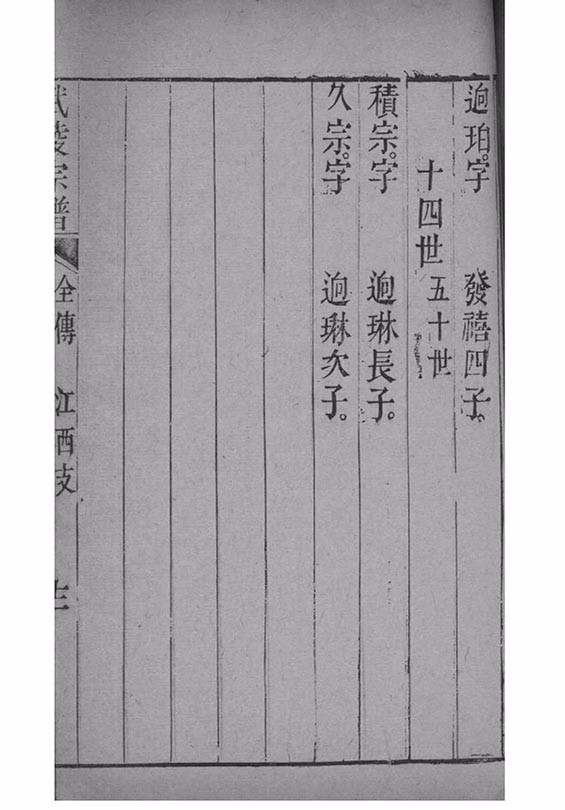 逈珀字 發禧四子
十四世 五十世
積宗字 逈琳長子
久宗字 逈琳次子
武陵宗譜 全傳 江西支